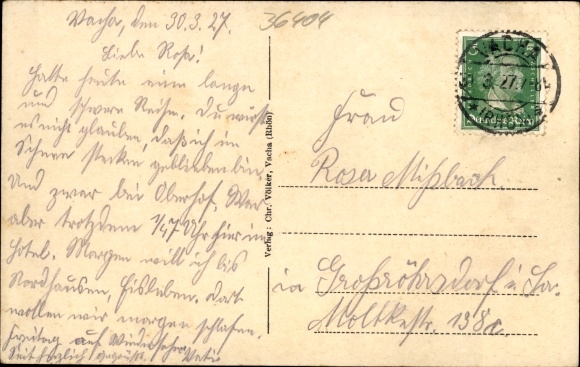 Vacha, den 30.3.27.
36404
Liebe Rosa!
Hatte heute eine lange
und schwere Reise. Du wirst
es nicht glauben, daß ich im
Schnee stecken geblieben bin.
Und zwar bei Oberhof. War
aber trotzdem 1/47 Uhr hier im
Hotel. Morgen will ich bis
Nordhausen, Eisleben, dort
wollen wir morgen schlafen.
Freitag auf Wiedersehen
Seit herzlich gegrüßt Vati
Verlag: Chr. Völker, Vacha (Rhön)
VACHA
3.27.
5
Deutsches Reich
Frau
Rosa Mißbach
in Großröhrsdorf i. Sa.
Moltkestr. 138c.